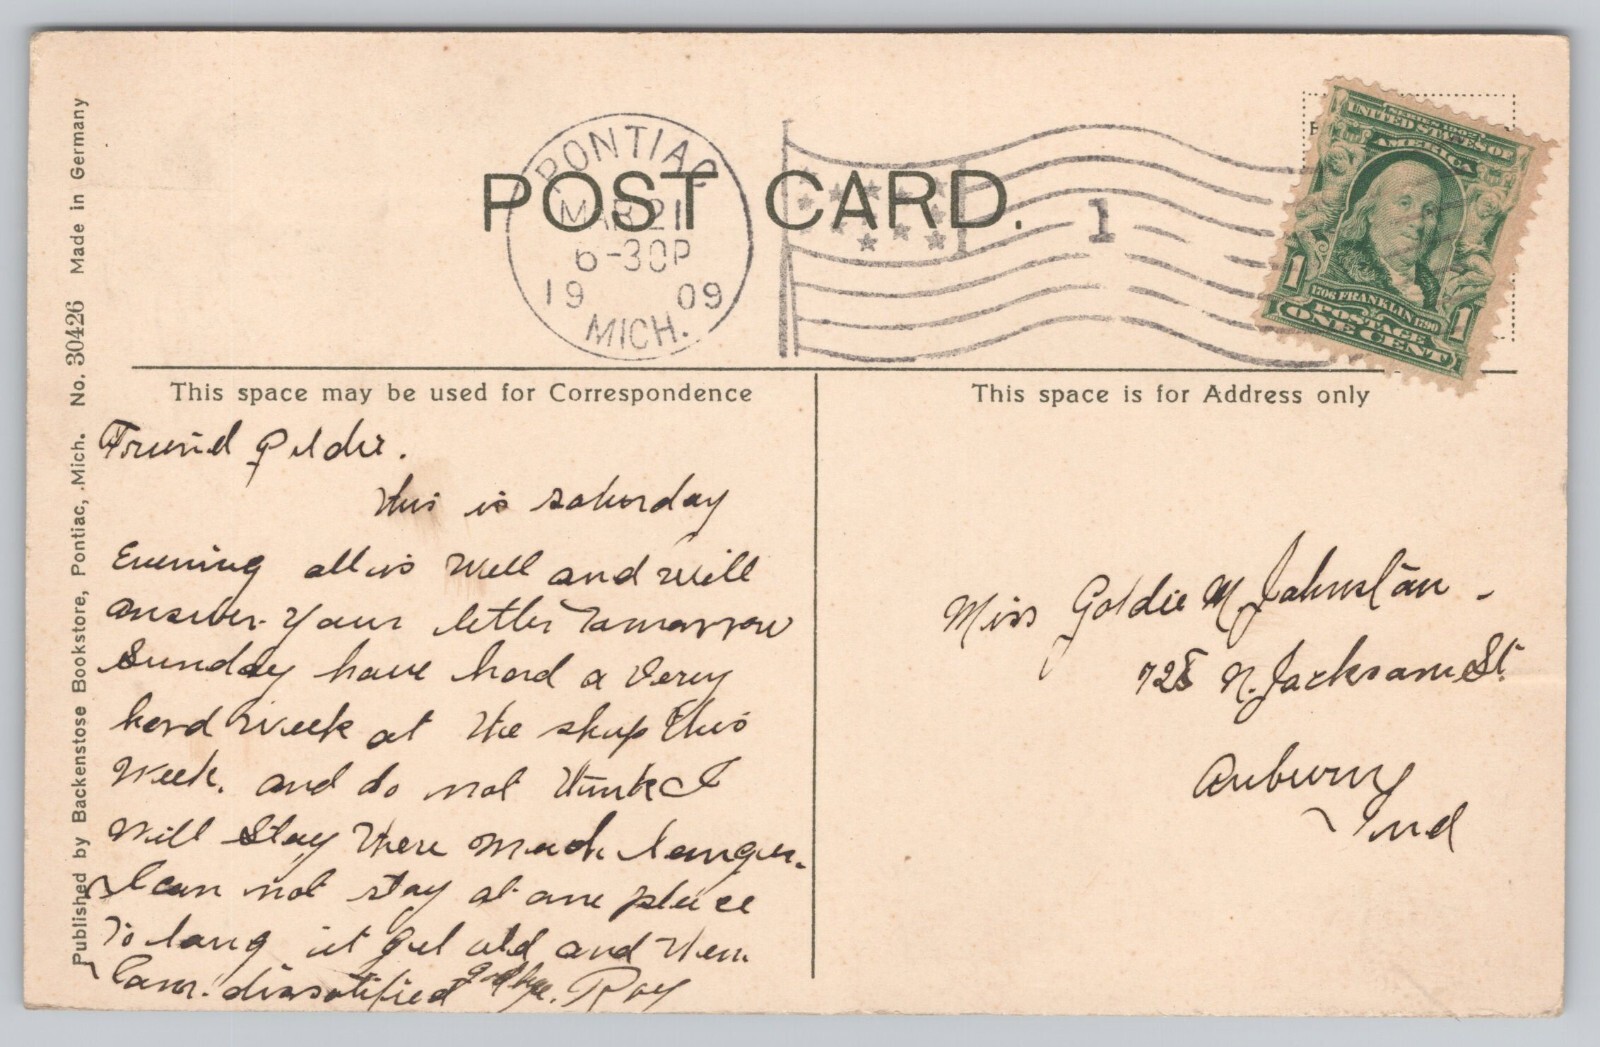 PONTIAC
MAR 21
6-30P
1909
MICH.
1
POST CARD.
SERIES 1902
UNITED STATES OF
AMERICA
1706 FRANKLIN 1790
POSTAGE
1 ONE CENT 1
Published by Backenstose Bookstore, Pontiac, Mich. No. 30426 Made in Germany
This space may be used for Correspondence
Friend Goldie.
This is Saturday
Evening all is well and will
answer your letter Tomorrow
Sunday have had a very
hard week at the shop this
week. and do not think I
will stay there much longer.
I can not stay at one place
To long it get old and then
I am dissatified goodbye. Roy
This space is for Address only
Miss Goldie M. Johnston -
728 N. Jackson St.
Auburn
Ind